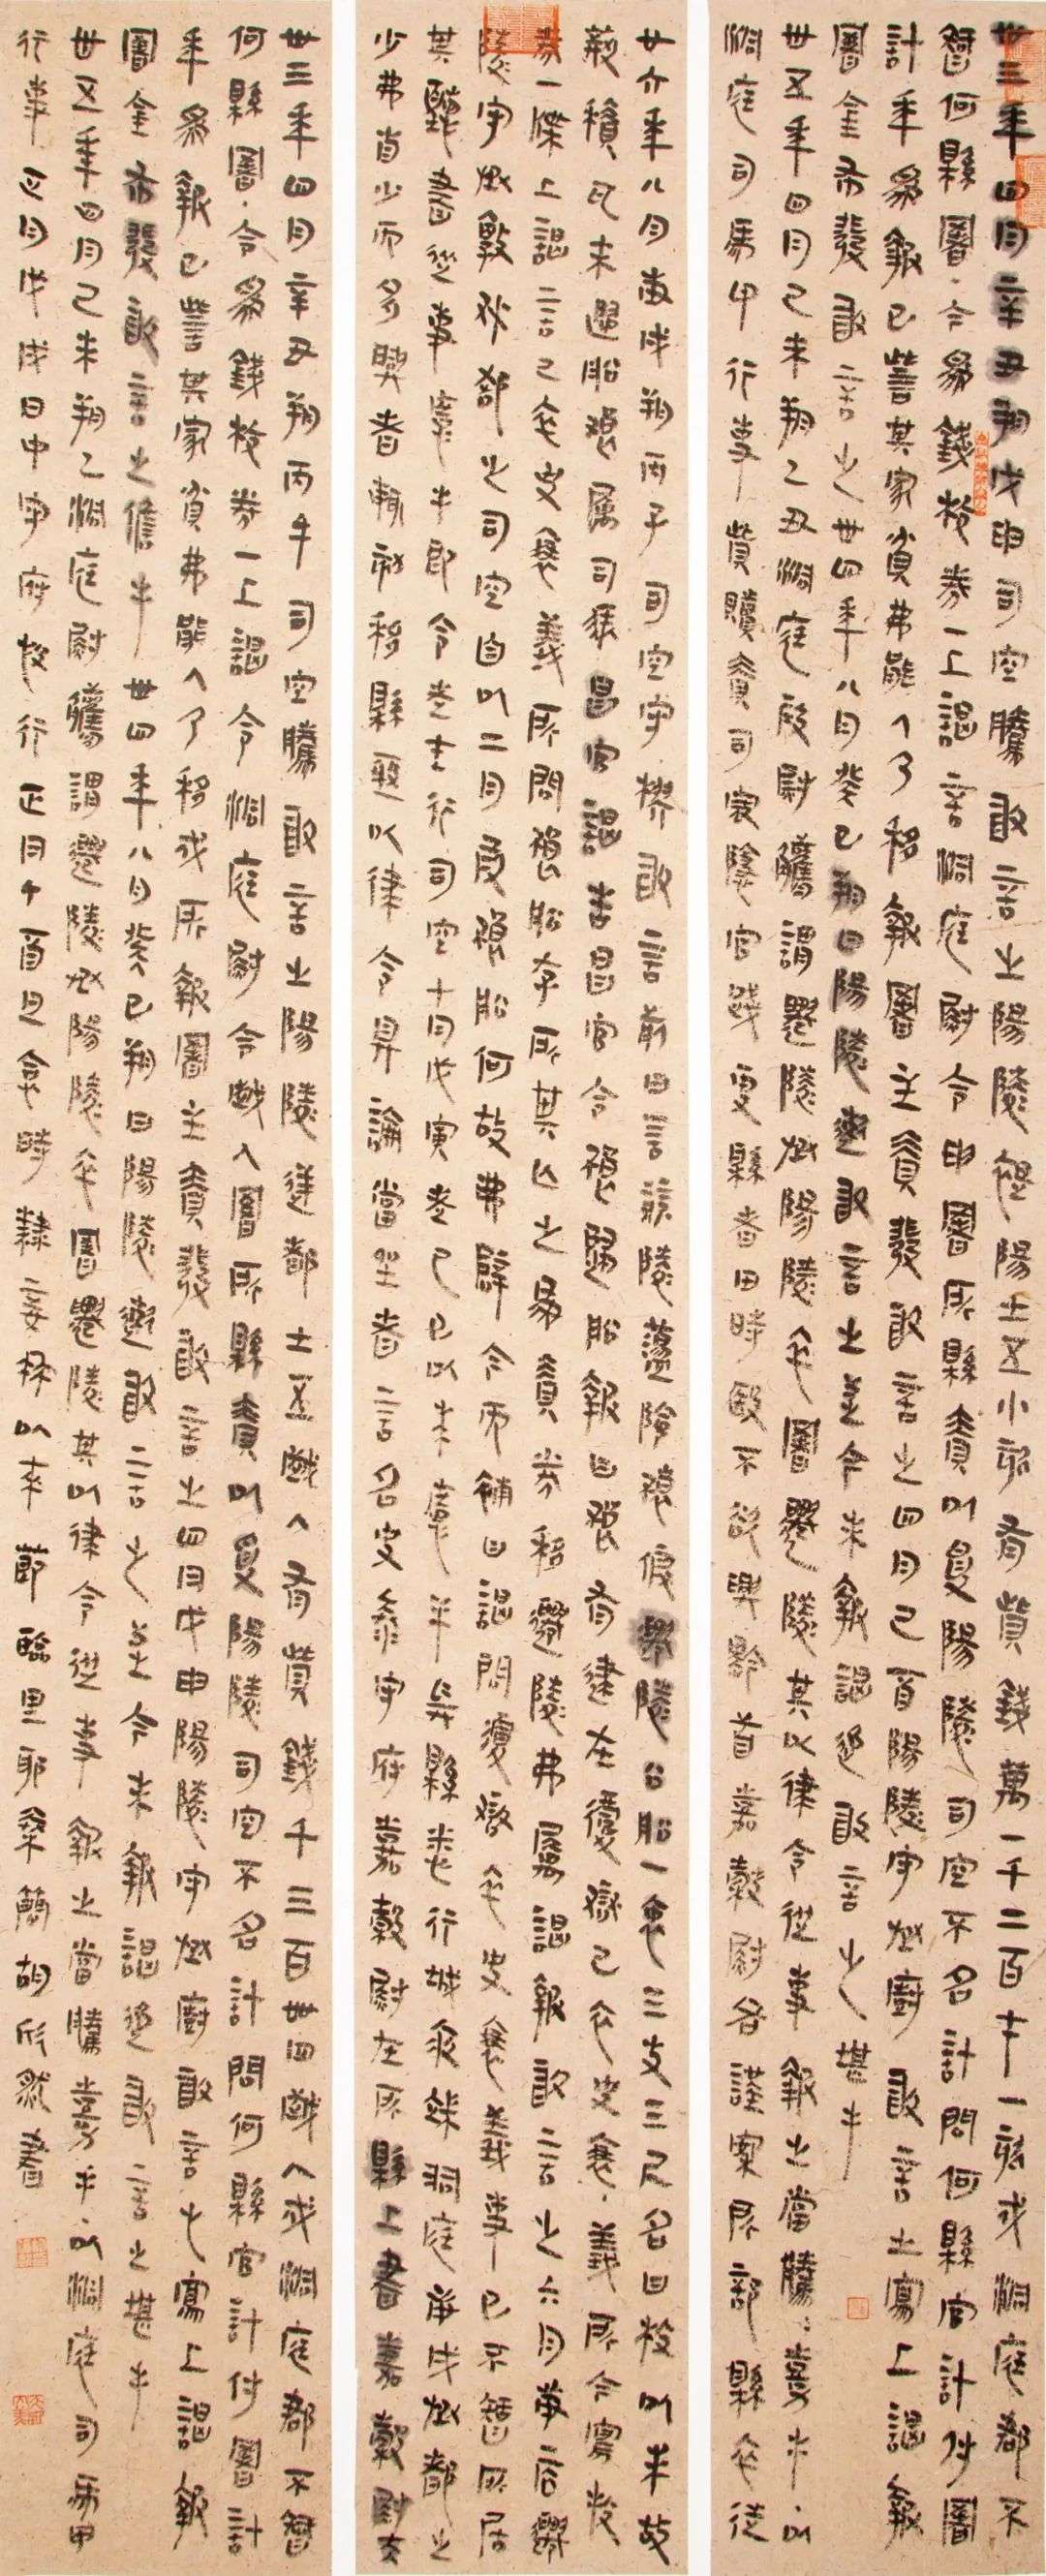 卅三年四月辛丑朔戊申司空騰敢言之陽陵褆陽士五小欬有貲錢萬一千二百七十一欬戍洞庭郡不
智何縣署·今為錢校券一上謁言洞庭尉令申署所縣責以受陽陵司空不名計問何縣官計付署
計年為報已訾其家貧弗能入乃移報署主責發敢言之四月己酉陽陵守丞廚敢言之寫上謁報
署金布發敢言之卅四年八月癸巳朔日陽陵遬敢言之至今未報謁追敢言之堪手
卅五年四月己未朔乙丑洞庭叚尉觿謂遷陵丞陽陵卒署遷陵其以律令從事報之當騰騰·嘉手·以
洞庭司馬印行事貲贖責司寇隱官踐更縣者田時殹不欲興黔首嘉穀尉各謹案所部縣卒徒
廿六年八月庚戌朔丙子司空守樛敢言前日言競陵蘯陰狼假遷陵公船一袤三丈三尺名曰柂以求故
荊積瓦未歸船狼屬司馬昌官謁告昌官令狼歸船報曰狼有逮在覆獄已卒史衰·義所今寫校
券一牒上謁言已卒史衰義所問狼船存所其亡之為責券移遷陵弗屬謁報敢言之六月庚辰遷
陵守丞敦狐卻之司空自以二月叚狼船何故弗辟今而補曰謁問覆獄卒史衰義事已不智所居
其聽書從事慶手即令走行司空十月戊寅走己巳以來慶半縣丞行洞庭戌丞都之
少弗省少而多興者輒劾移縣亟以律令具論當坐者言名史泰守府嘉穀尉在所縣上書嘉穀尉
卅三年四月辛丑朔丙午司空騰敢言之陽陵逆都士五盬人有貲錢千三百卌四盬人戍洞庭郡不智
何縣署·今為錢校券一上謁令洞庭尉令盬人署所縣責以受陽陵司空不名計問何縣官計付署計
年為報已訾其家貧弗能入乃移戍所報署主責發敢言之四月戊申陽陵守丞廚敢言之寫上謁報
署金布發敢言之儋手卅四年八月癸巳朔日陽陵遬敢言之至今未報謁追敢言之堪手
卅五年四月己未朔乙洞庭尉觿謂遷陵丞陽陵卒署遷陵其以律令從事報之當騰嘉手·以洞庭司馬印
行事正月戊戌日中守府快行正月丁酉旦食時隸妾冉以來節臨里耶秦簡胡欣然書